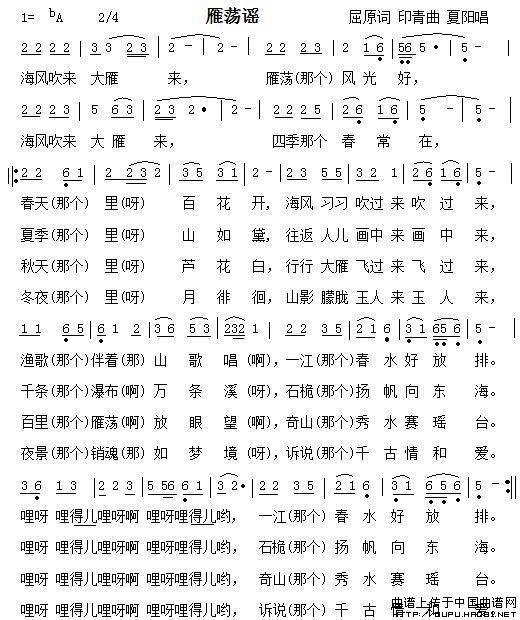 1= ♭A 2/4 雁荡谣 屈原词 印青曲 夏阳唱
2 2 2 2 | 3 3 2 3 | 2 - | 2 - | 2 2 2 3 | 2 1 6 | 5 6 5 · | 5 - |
海风吹来 大雁 来， 雁荡(那个) 风 光 好，
2 2 2 3 | 5 6 3 | 2 3 2 · | 2 - | 2 2 2 5 | 2 6 1 6 | 5 - | 5 - |
海风吹来 大 雁 来， 四季那个 春 常 在，
2 2 6 1 | 2 2 3 2 | 3 5 3 1 | 2 - | 2 3 5 5 | 3 2 1 | 2 6 1 6 | 5 - |
春天(那个) 里(呀) 百 花 开，海风 习习 吹过 来 吹 过 来，
夏季(那个) 里(呀) 山 如 黛，往返 人儿 画中 来 画 中 来，
秋天(那个) 里(呀) 芦 花 白，行行 大雁 飞过 来 飞 过 来，
冬夜(那个) 里(呀) 月 徘 徊，山影 朦胧 玉人 来 玉 人 来，
1 1 6 5 | 6 1 2 | 3 6 5 3 | 2 3 2 1 | 2 2 3 5 | 2 1 6 | 3 1 6 5 6 | 5 - |
渔歌(那个)伴着(那) 山 歌 唱(啊)，一江(那个)春 水 好 放 排。
千条(那个)瀑布(啊) 万 条 溪(呀)，石桅(那个)扬 帆 向 东 海。
百里(那个)雁荡(啊) 放 眼 望(啊)，奇山(那个)秀 水 赛 瑶 台。
夜景(那个)销魂(那) 如 梦 境(呀)，诉说(那个)千 古 情 和 爱。
3 6 1 3 | 2 2 3 | 5 5 6 5 3 | 3 2 · | 2 2 3 5 | 2 1 6 | 3 1 6 5 6 | 5 - :||
哩呀 哩得儿哩呀啊 哩呀哩得儿哟， 一江(那个) 春 水 好 放 排。
哩呀 哩得儿哩呀啊 哩呀哩得儿哟， 石桅(那个) 扬 帆 向 东 海。
哩呀 哩得儿哩呀啊 哩呀哩得儿哟， 奇山(那个) 秀 水 赛 瑶 台。
哩呀 哩得儿哩呀啊 哩呀哩得儿哟， 诉说(那个) 千 古 情 和 爱。
曲谱上传于中国曲谱网